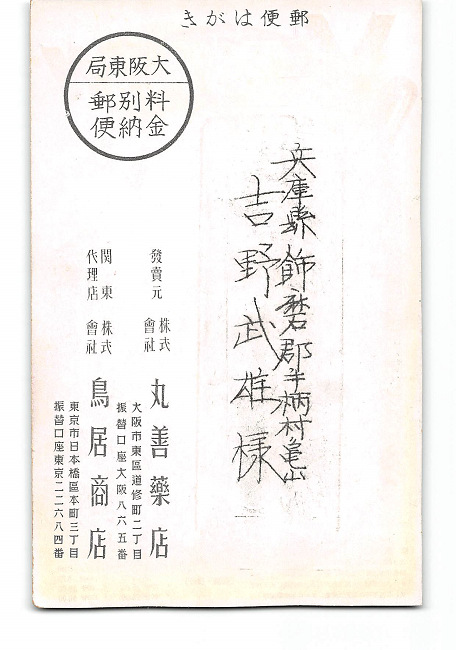 郵便はがき
大阪東局
料金別納郵便
兵庫縣飾磨郡手柄村亀山
吉野武雄様
發賣元 株式會社 丸善藥店
大阪市東區道修町二丁目
振替口座大阪八六五番
関東代理店 株式會社 鳥居商店
東京市日本橋區本町三丁目
振替口座東京二二六八四番